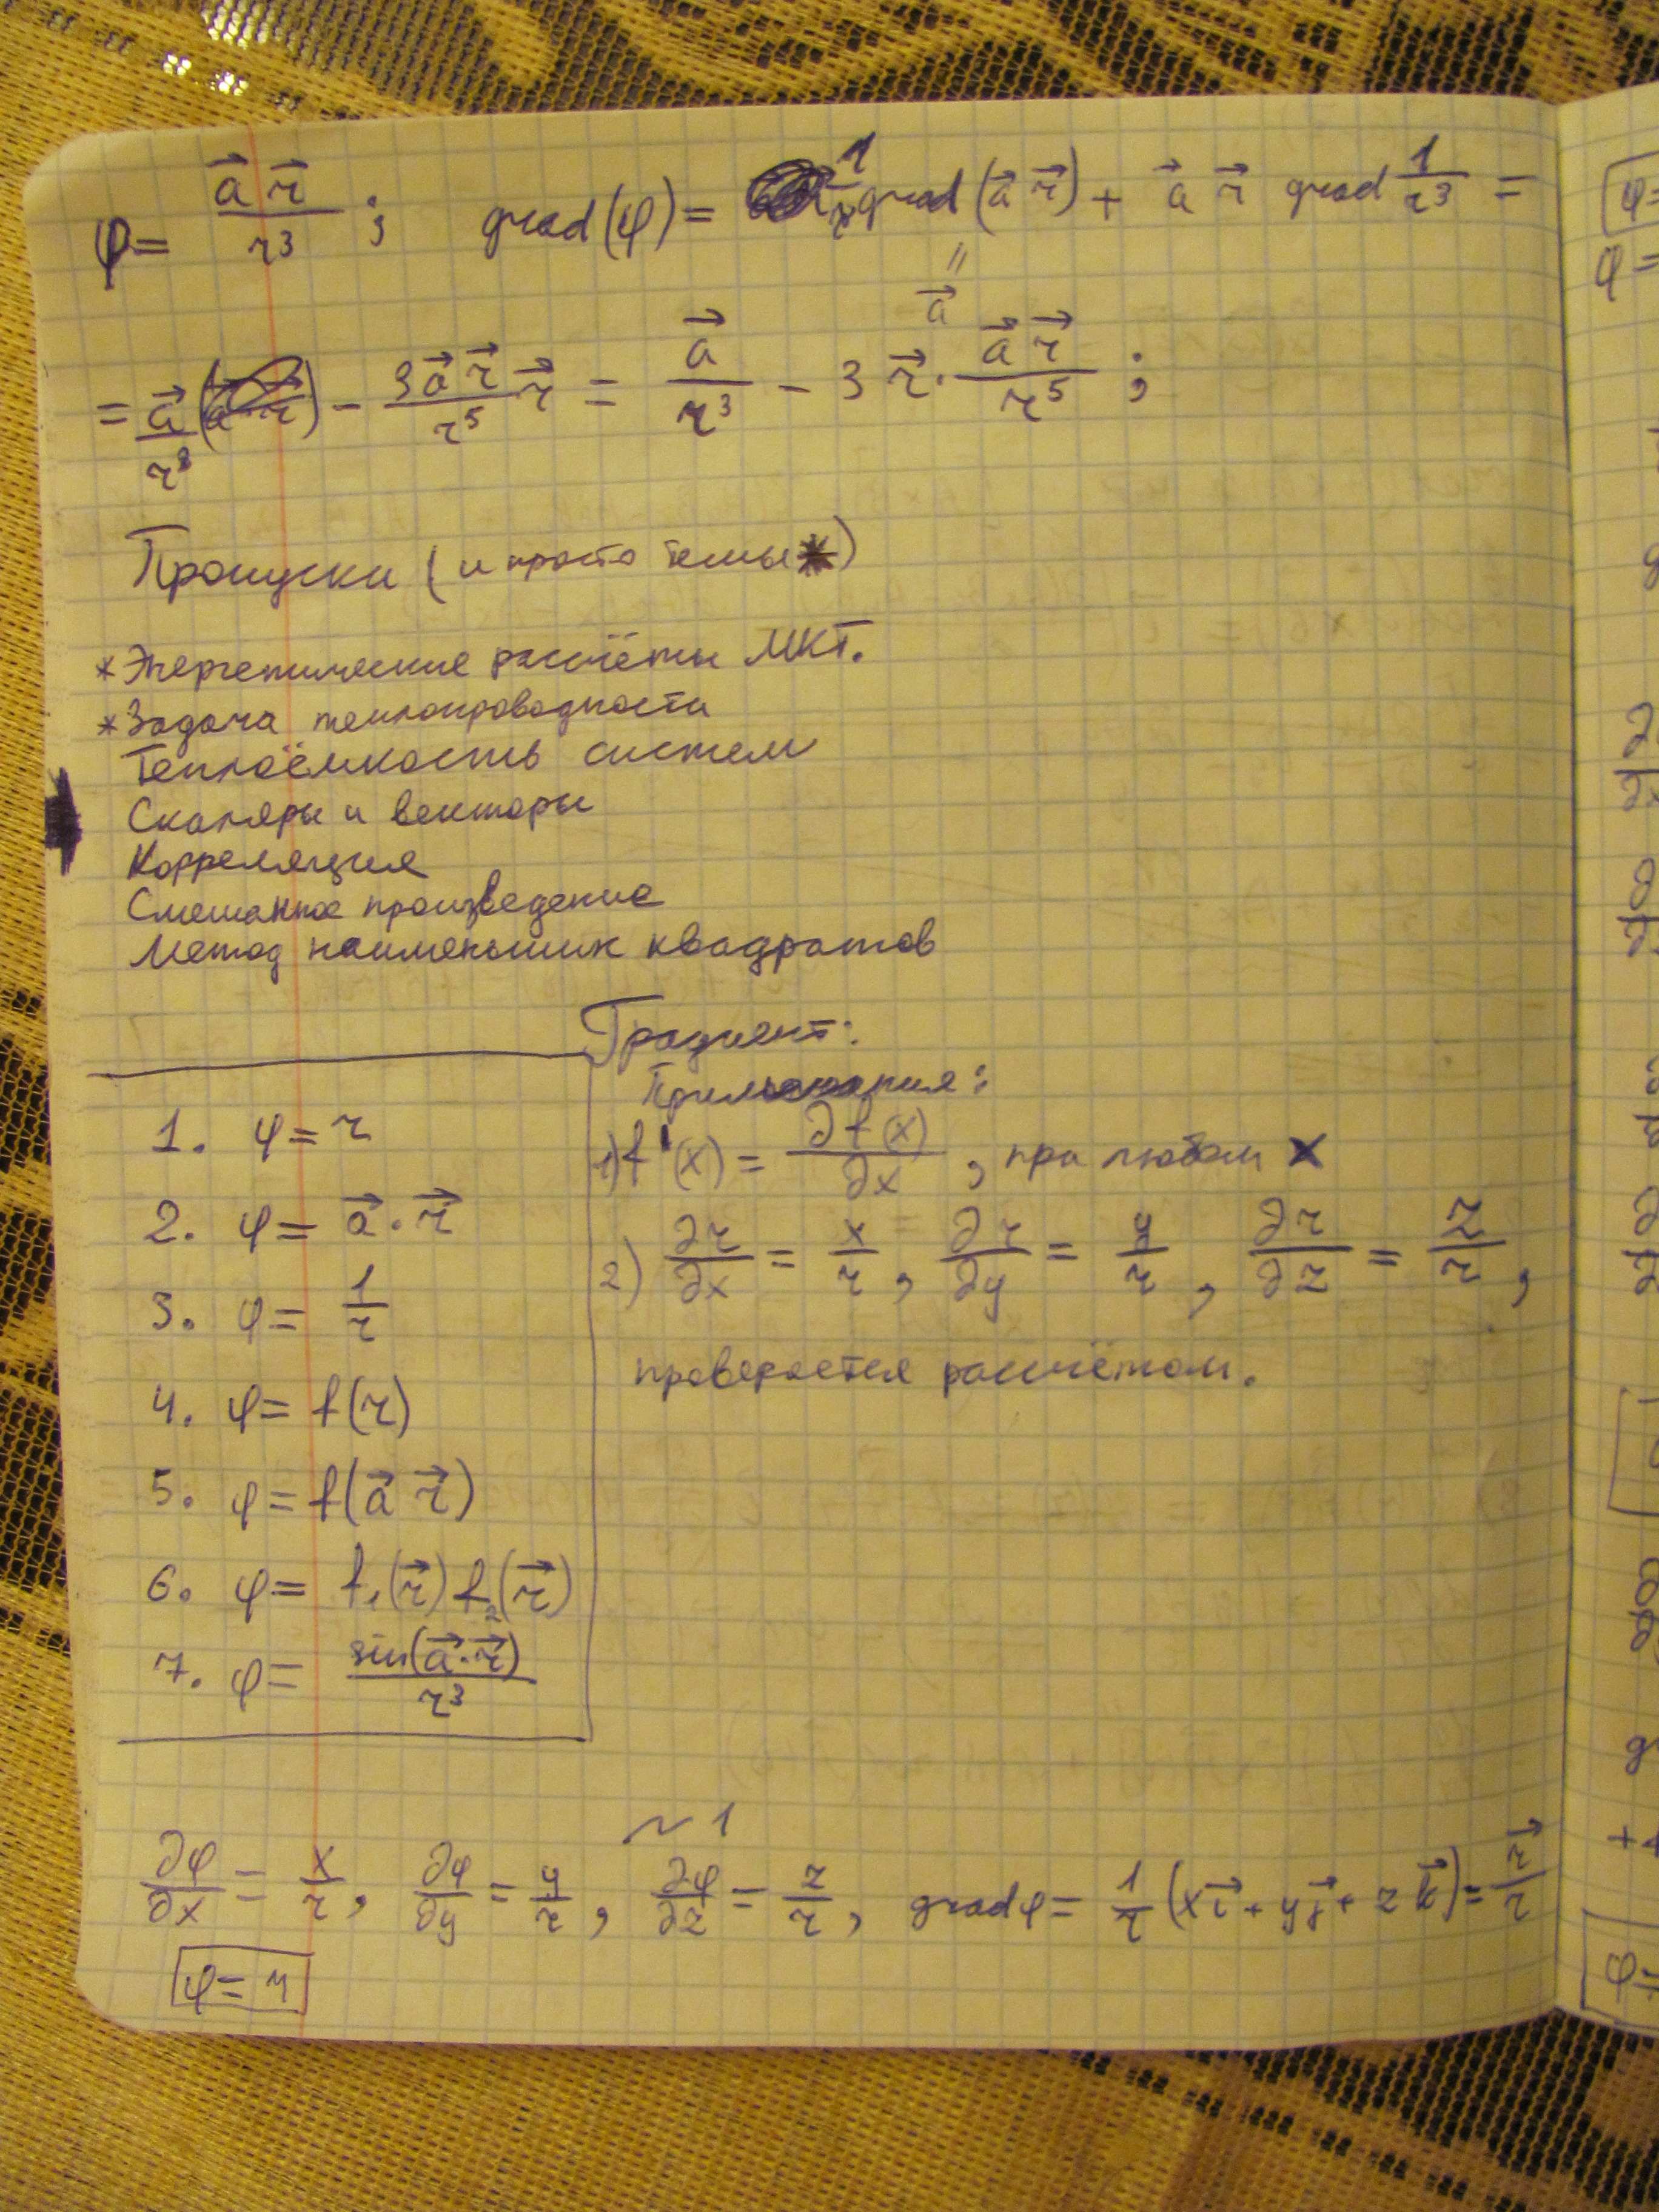 φ = a⃗ r⃗ / r³ ; grad(φ) = 1/r³ grad(a⃗ r⃗) + a⃗ r⃗ grad 1/r³ =
"
a⃗
= a⃗/r³ − 3a⃗ r⃗/r⁵ r⃗ = a⃗/r³ − 3 r⃗ · a⃗ r⃗/r⁵ ;
Пропуски (и просто темы*)
* Энергетические расчёты МКТ.
* Задача теплопроводности
Теплоёмкость систем
Скаляры и векторы
Корреляция
Смешанное произведение
Метод наименьших квадратов
Градиент:
Примечания:
1) f'(x) = ∂f(x)/∂x , при любом x
2) ∂r/∂x = x/r , ∂r/∂y = y/r , ∂r/∂z = z/r ,
проверяется расчётом.
1. φ = r
2. φ = a⃗ · r⃗
3. φ = 1/r
4. φ = f(r)
5. φ = f(a⃗ r⃗)
6. φ = f₁(r⃗) f₂(r⃗)
7. φ = sin(a⃗ · r⃗)/r³
~ 1
∂φ/∂x = x/r , ∂φ/∂y = y/r , ∂φ/∂z = z/r , grad φ = 1/r (x i⃗ + y j⃗ + z k⃗) = r⃗/r
φ = r